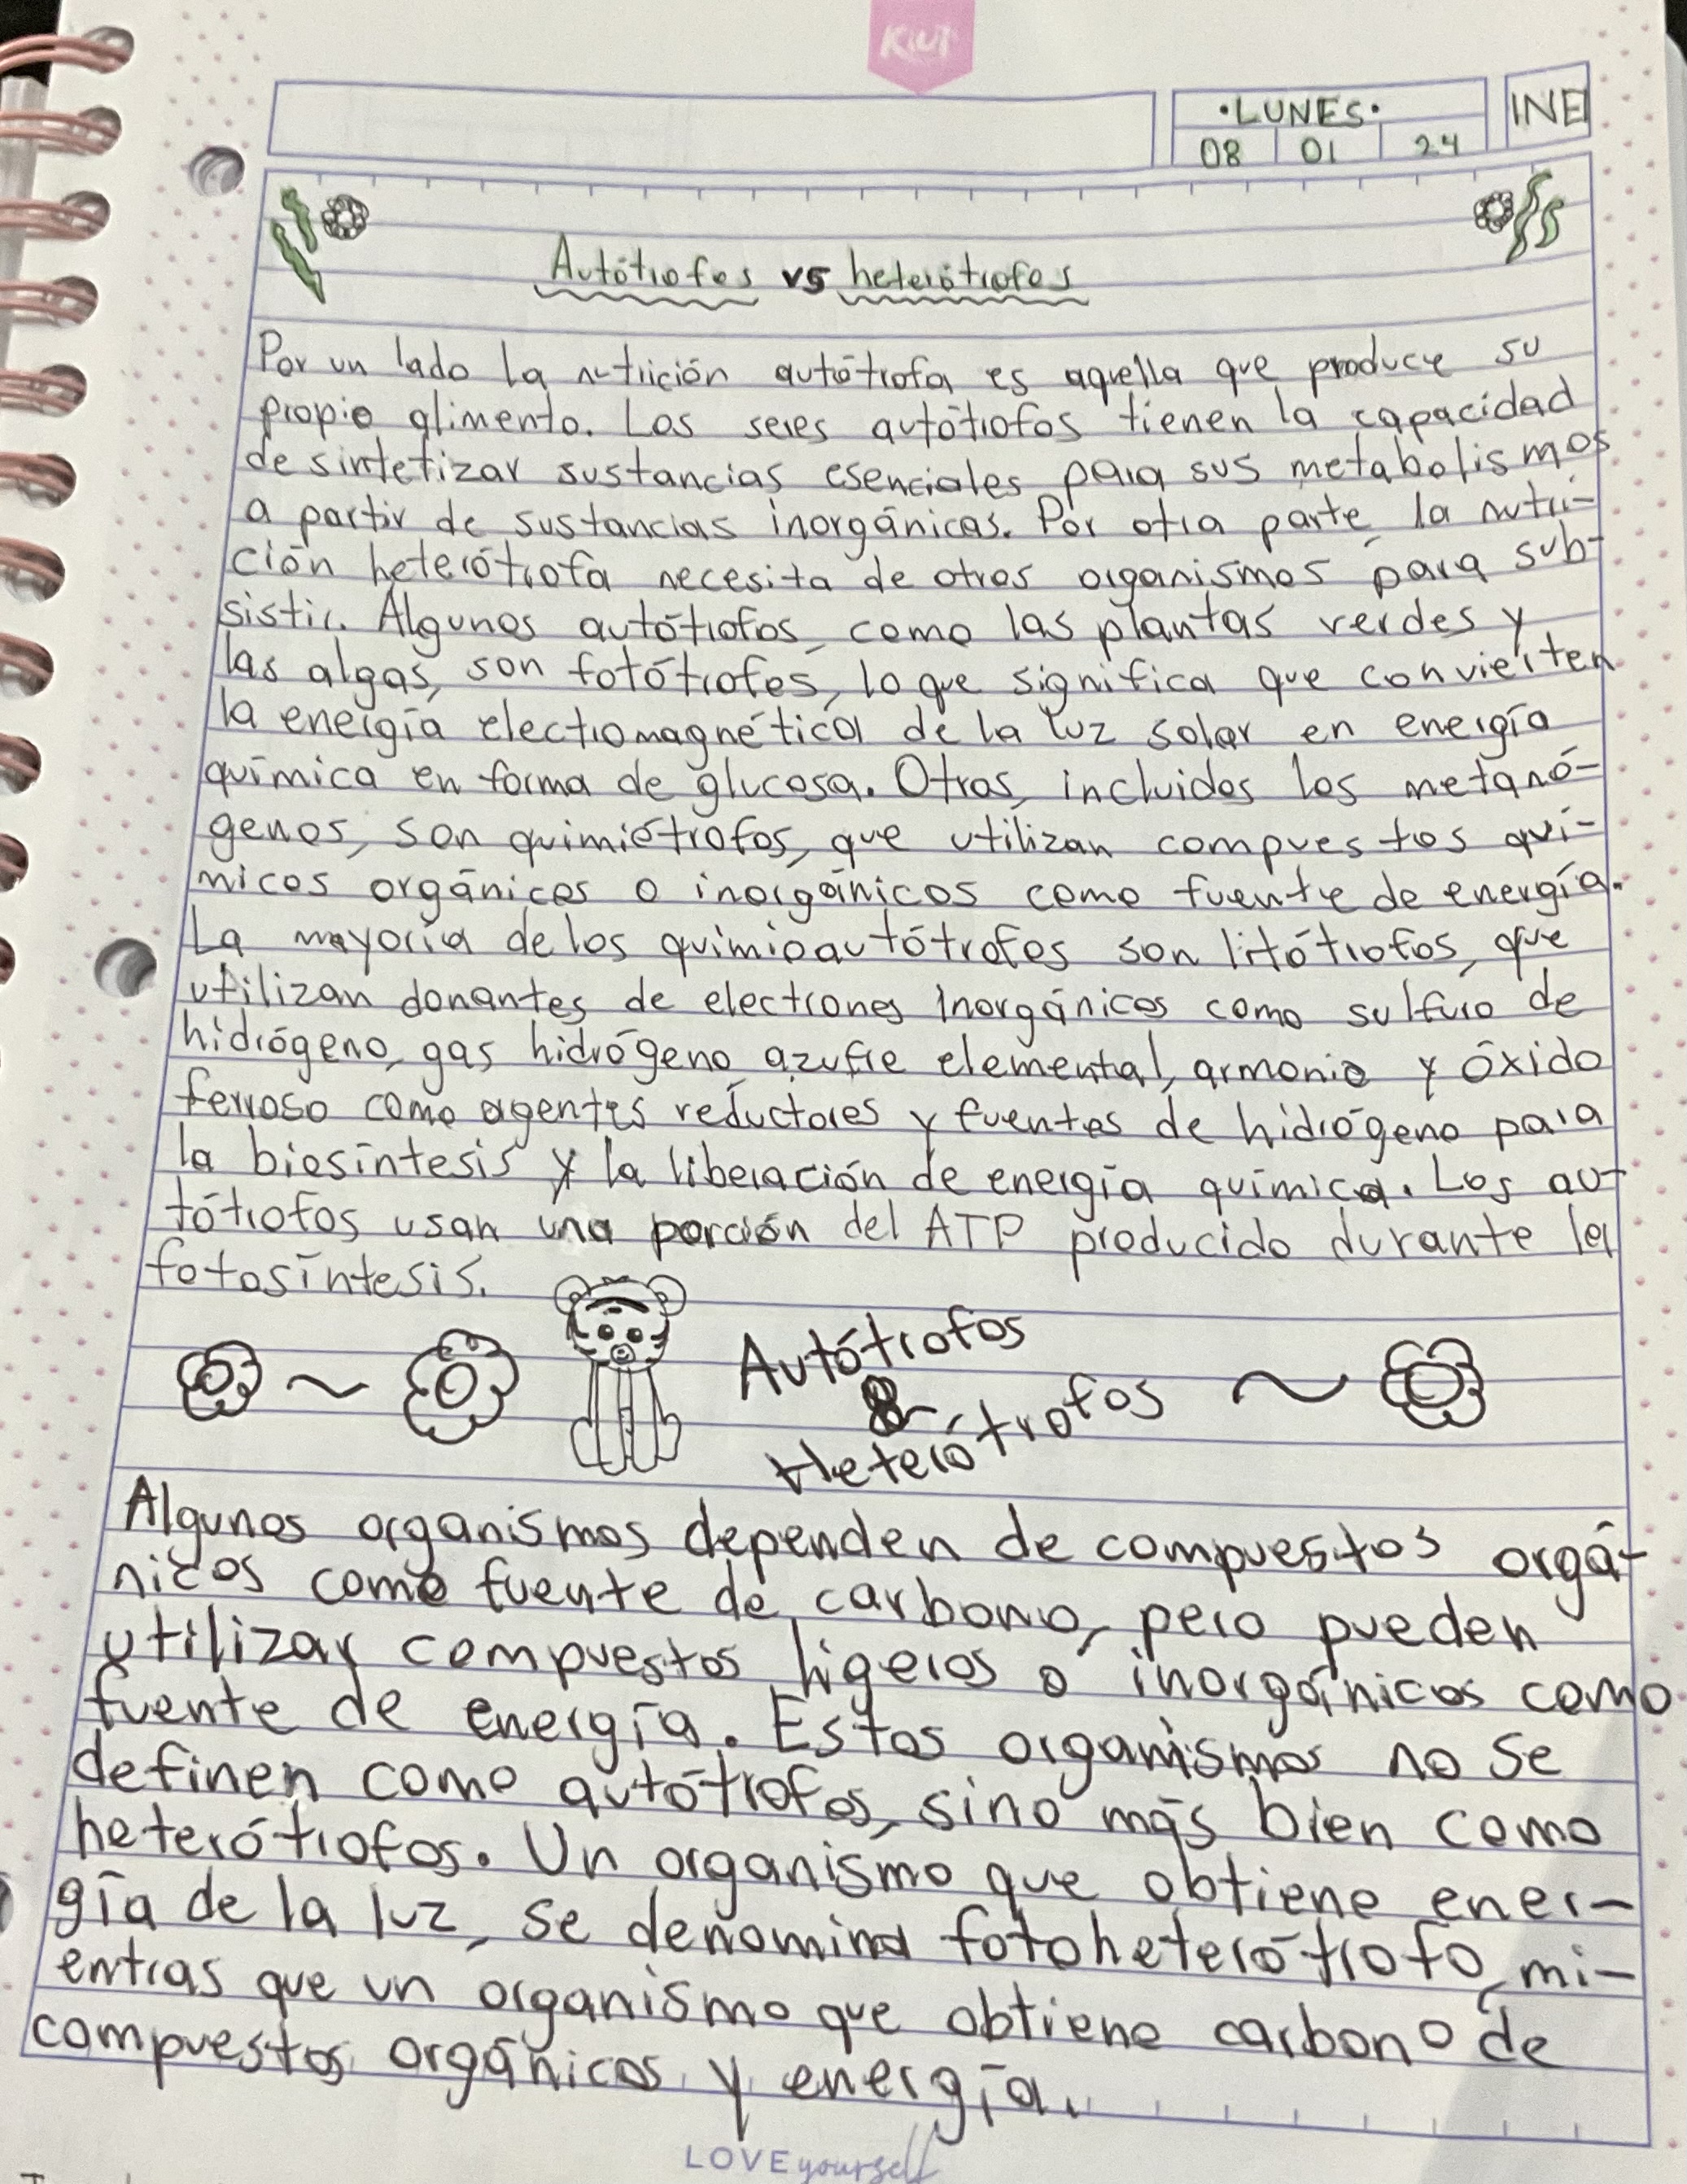 KIUT
•LUNES•
INE
08 01 24
Autótrofos vs heterótrofos
Por un lado la nutrición autótrofa es aquella que produce su
propio alimento. Los seres autótrofos tienen la capacidad
de sintetizar sustancias esenciales para sus metabolismos
a partir de sustancias inorgánicas. Por otra parte, la nutri-
ción heterótrofa necesita de otros organismos para sub-
sistir. Algunos autótrofos, como las plantas verdes y
las algas, son fotótrofos, lo que significa que convierten
la energía electromagnética de la luz solar en energía
química en forma de glucosa. Otros, incluidos los metanó-
genos, son quimiótrofos, que utilizan compuestos quí-
micos orgánicos o inorgánicos como fuente de energía.
La mayoría de los quimioautótrofos son litótrofos, que
utilizan donantes de electrones inorgánicos como sulfuro de
hidrógeno, gas hidrógeno azufre elemental, armonio y óxido
ferroso como agentes reductores y fuentes de hidrógeno para
la biosíntesis y la liberación de energía química. Los au-
tótrofos usan una porción del ATP producido durante la
fotosíntesis.
Autótrofos
&
Heterótrofos
Algunos organismos dependen de compuestos orgá-
nicos como fuente de carbono, pero pueden
utilizar compuestos ligeros o inorgánicos como
fuente de energía. Estos organismos no se
definen como autótrofos, sino más bien como
heterótrofos. Un organismo que obtiene ener-
gía de la luz, se denomina fotoheterótrofo, mi-
entras que un organismo que obtiene carbono de
compuestos orgánicos y energía.
LOVE yourself